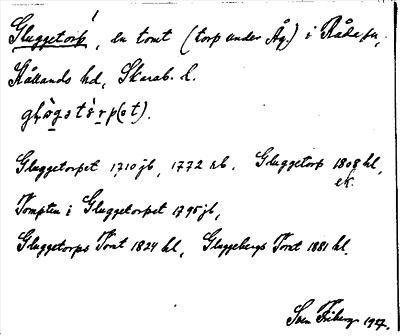 Gluggetorp, en tomt (torp under Åg.) i Råda sn,
Kållands hd, Skarab. l.
Gluggetorpet 1710 jb, 1772 sb. Gluggetorp 1808 hl,
ek.
Tompten i Gluggetorpet 1795 jb,
Gluggetorps Tomt 1824 hl, Gluggebergs Tomt 1881 hl.
Sven Friberg 1927.